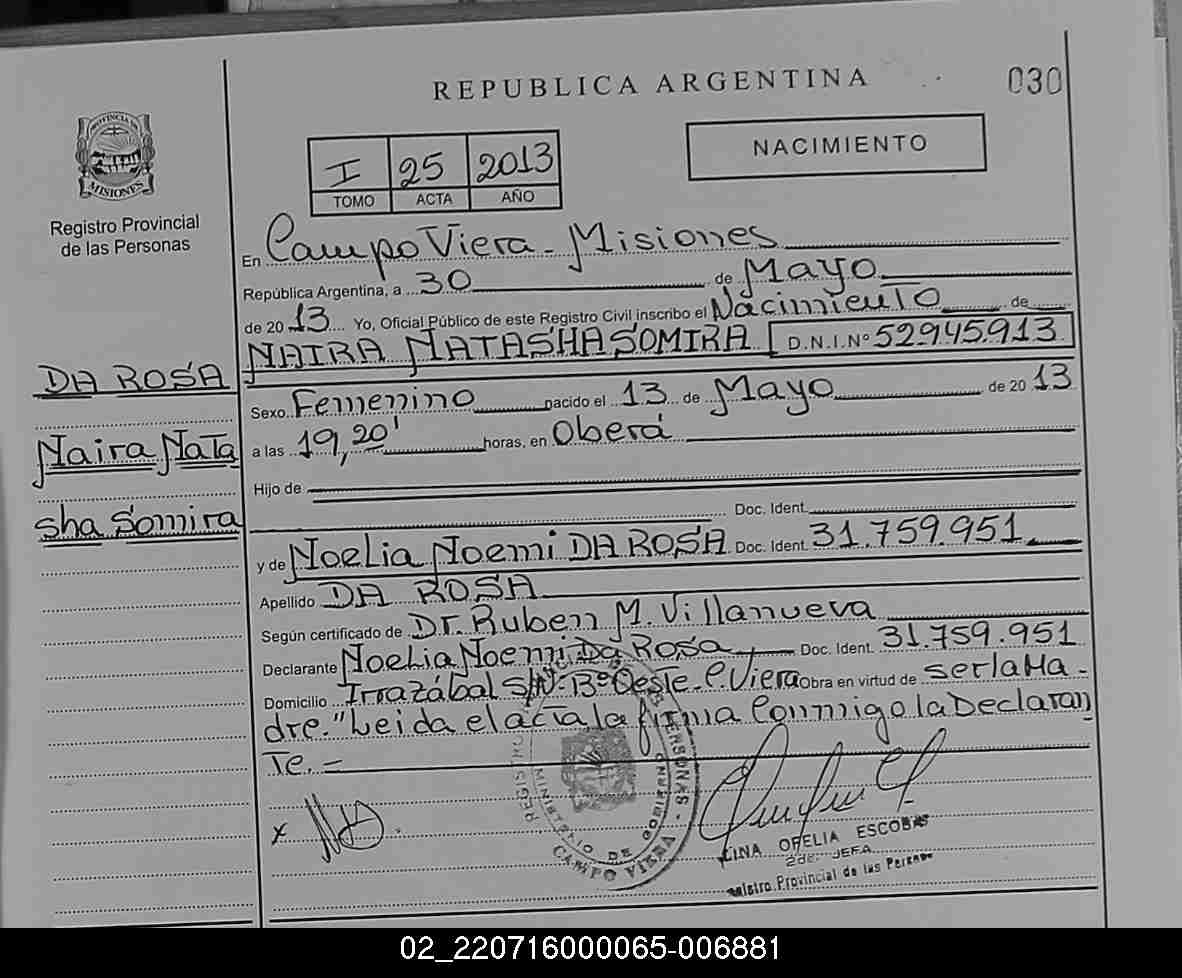 REPUBLICA ARGENTINA
030
PROVINCIA DE
MISIONES
Registro Provincial
de las Personas
I 25 2013
TOMO ACTA AÑO
NACIMIENTO
En Campo Viera - Misiones
República Argentina, a 30 de Mayo
de 2013 Yo, Oficial Público de este Registro Civil inscribo el Nacimiento de
NAIRA NATASHA SOMIRA D.N.I.Nº 52.945.913
DA ROSA
Naira Nata
sha Somira
Sexo Femenino nacido el 13 de Mayo de 2013
a las 19,20' horas, en Oberá
Hijo de
Doc. Ident.
y de Noelia Noemi DA ROSA Doc. Ident. 31.759.951
Apellido DA ROSA
Según certificado de Dr. Ruben M. Villanueva
Declarante Noelia Noemi Da Rosa, Doc. Ident. 31.759.951
Domicilio Irrazábal S/Nº Bº Oeste - C. Viera Obra en virtud de ser la Ma-
dre. "Leida el acta la firma Conmigo la Declaran
Te. -
x
PERSONAS -
MINISTERIO DE GOBIERNO
CAMPO VIERA
LINA OFELIA ESCOBAR
2da. JEFA
Registro Provincial de las Personas
02_220716000065-006881